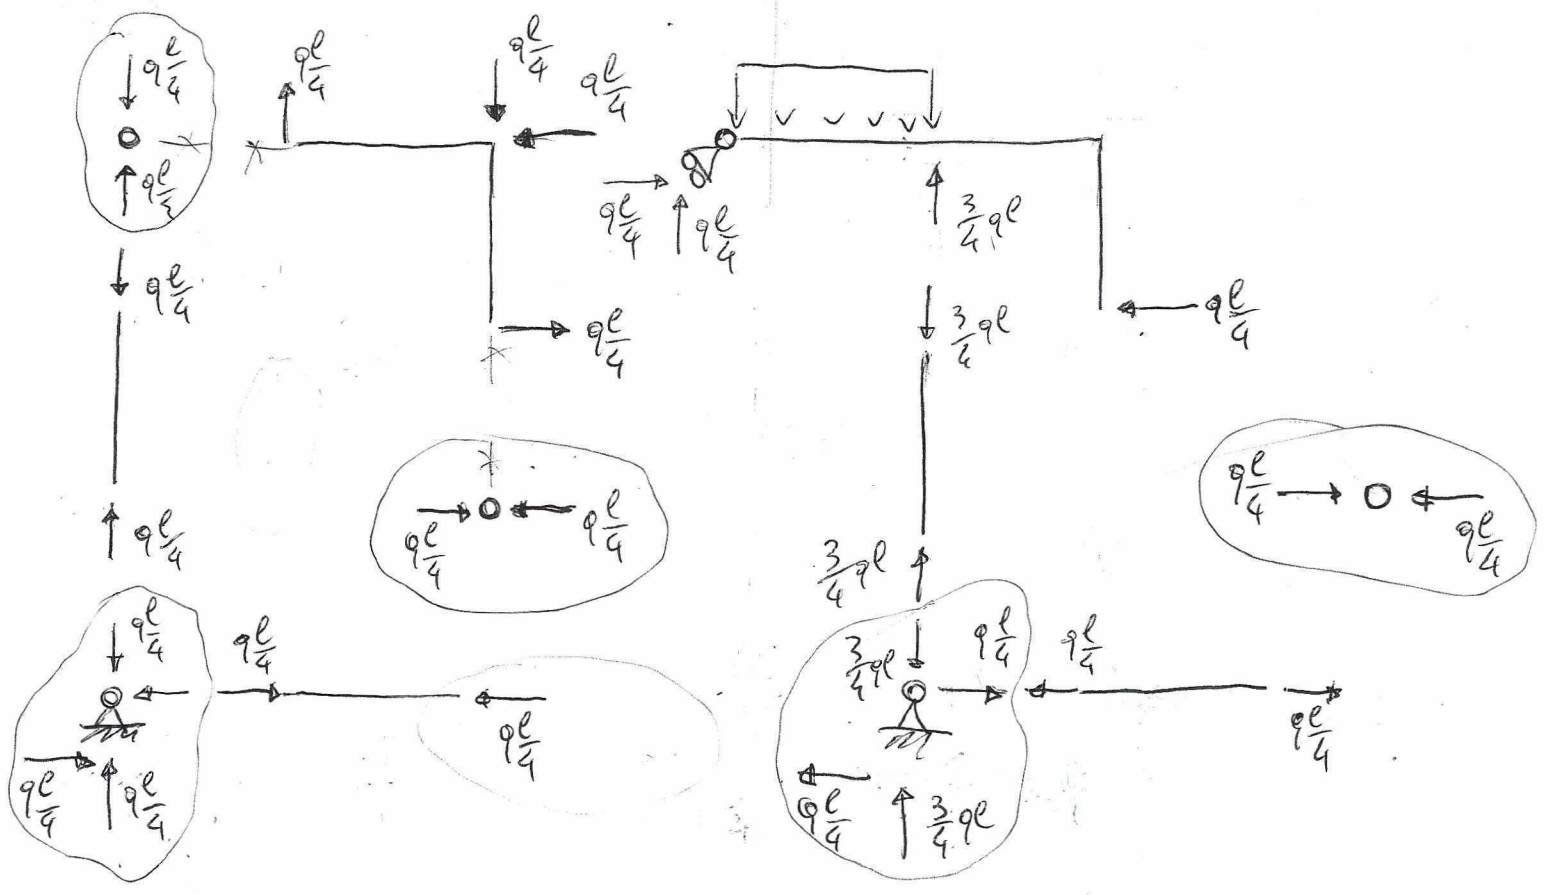 q l/4
q l/4
q l/4
q l/4
q l/4
q l/4
q l/4
q l/4
3/4 ql
q l/4
3/4 ql
q l/4
q l/4
q l/4
q l/4
q l/4
q l/4
q l/4
3/4 ql
q l/4
q l/4
3/4 ql
q l/4
q l/4
q l/4
q l/4
q l/4
q l/4
q l/4
3/4 ql